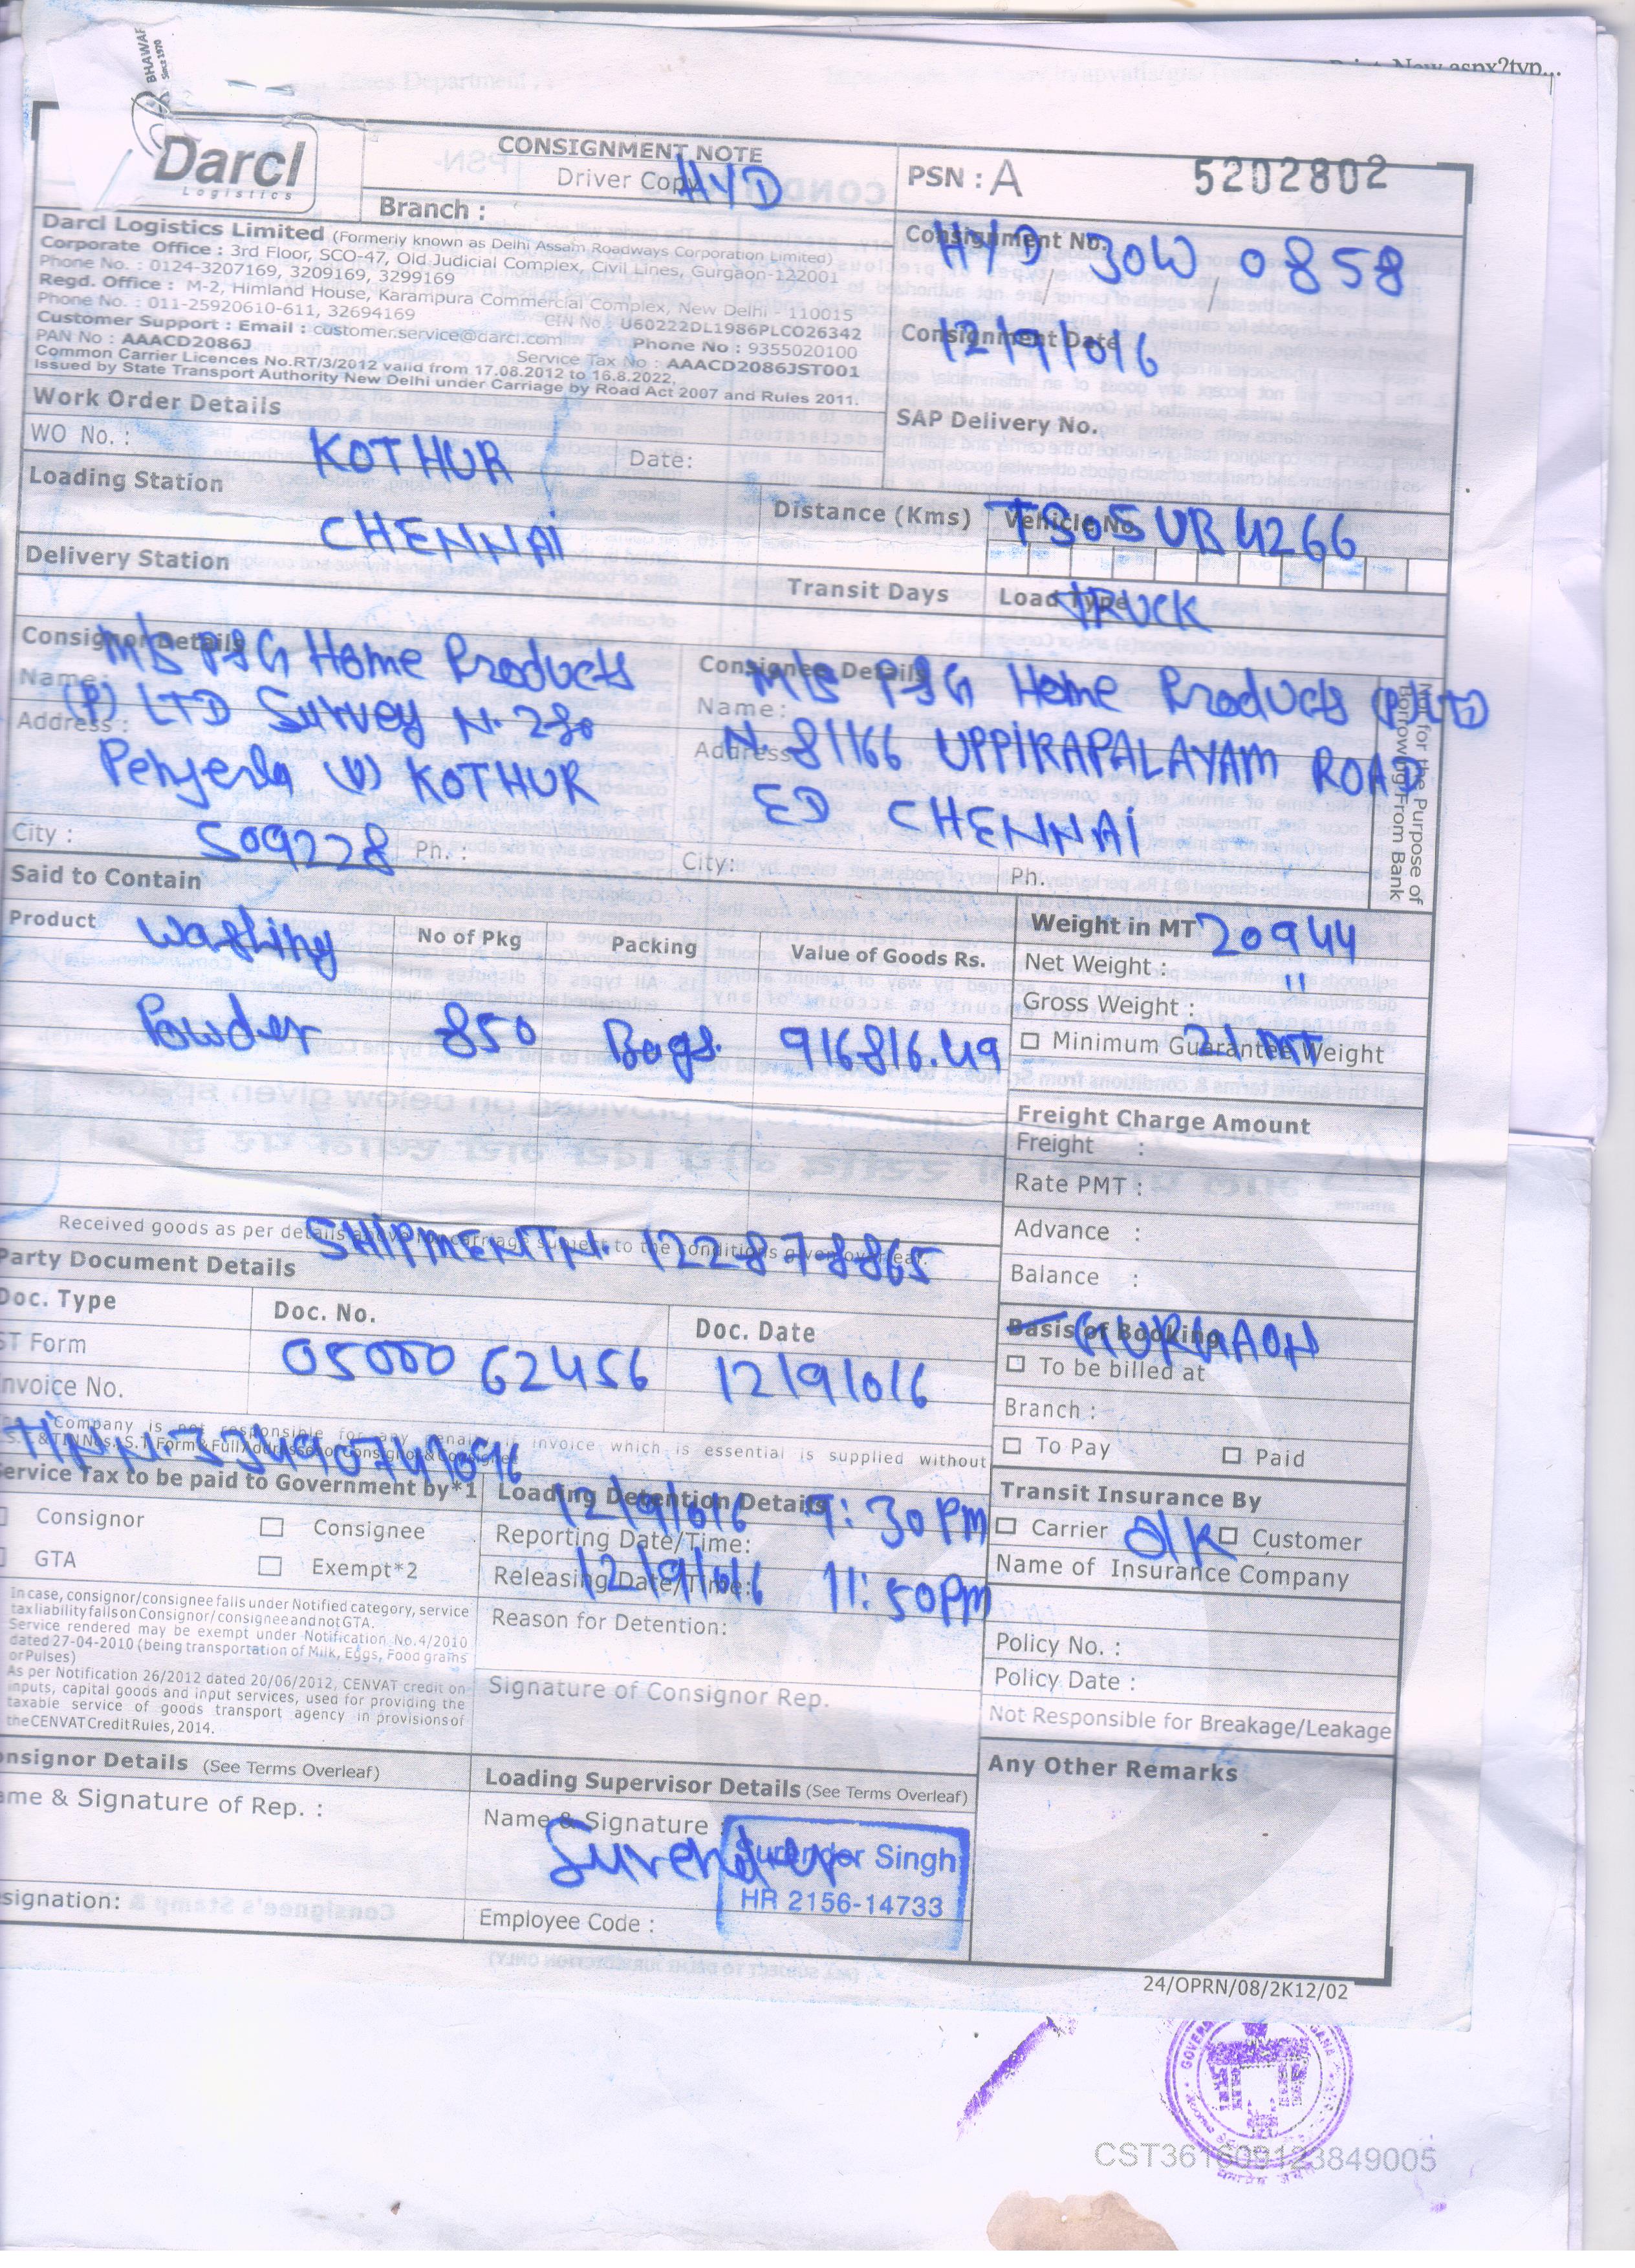 BHAWAR
Since 1970
Print_New.aspx?typ...
Darcl
Logistics
CONSIGNMENT NOTE
Driver Copy
Branch : HYD
PSN : A 5202802
Darcl Logistics Limited (Formerly known as Delhi Assam Roadways Corporation Limited)
Corporate Office : 3rd Floor, SCO-47, Old Judicial Complex, Civil Lines, Gurgaon-122001
Phone No. : 0124-3207169, 3209169, 3299169
Regd. Office : M-2, Himland House, Karampura Commercial Complex, New Delhi - 110015
Phone No. : 011-25920610-611, 32694169
CIN No. U60222DL1986PLC026342
Customer Support : Email : customer.service@darcl.com Phone No : 9355020100
PAN No : AAACD2086J Service Tax No : AAACD2086JST001
Common Carrier Licences No.RT/3/2012 valid from 17.08.2012 to 16.8.2022,
Issued by State Transport Authority New Delhi under Carriage by Road Act 2007 and Rules 2011.
Consignment No.
HYD 30W 0858
Consignment Date
12/9/016
SAP Delivery No.
Work Order Details
WO No. : Date:
Loading Station KOTHUR
Distance (Kms)
Vehicle No. TS05UB4266
Delivery Station CHENNAI
Transit Days
Load Type TRUCK
Consignor Details
Name: M/s P&G Home Products
Address : (P) LTD Survey N. 280
Penjerla (V) KOTHUR
City : 509228 Ph. :
Consignee Details
Name: M/s P&G Home Products (P) LTD
Address N. 81/66 UPPIRAPALAYAM ROAD
ED CHENNAI
City: Ph.
Not for the Purpose of
Borrowing From Bank
Said to Contain
Product No of Pkg Packing Value of Goods Rs.
Washing
Powder 850 Bags. 916816.49
Weight in MT 20944
Net Weight : "
Gross Weight :
Minimum Guarantee Weight 21 MT
Freight Charge Amount
Freight :
Rate PMT :
Advance :
Balance :
Received goods as per details above for carriage subject to the conditions given overleaf.
SHIPMENT N. 122878865
Party Document Details
Doc. Type Doc. No. Doc. Date
ST Form
Invoice No. 0500062456 12/9/016
Basis of Booking
GURGAON
To be billed at
Branch :
To Pay Paid
Company is not responsible for any penalty if invoice which is essential is supplied without
Service Tax to be paid to Government by*1
Consignor Consignee
GTA Exempt*2
In case, consignor/consignee falls under Notified category, service
tax liability falls on Consignor/consignee and not GTA.
Service rendered may be exempt under Notification No.4/2010
dated 27-04-2010 (being transportation of Milk, Eggs, Food grains
or Pulses)
As per Notification 26/2012 dated 20/06/2012, CENVAT credit on
inputs, capital goods and input services, used for providing the
taxable service of goods transport agency in provisions of
the CENVAT Credit Rules, 2014.
Loading Detention Details
Reporting Date/Time: 12/9/016 9:30 PM
Releasing Date/Time: 12/9/016 11:50PM
Reason for Detention:
Signature of Consignor Rep.
Transit Insurance By
Carrier Customer
Name of Insurance Company
Policy No. :
Policy Date :
Not Responsible for Breakage/Leakage
Any Other Remarks
Consignor Details (See Terms Overleaf)
Name & Signature of Rep. :
Designation:
Loading Supervisor Details (See Terms Overleaf)
Name & Signature :
Surender
Surender Singh
HR 2156-14733
Employee Code :
24/OPRN/08/2K12/02
CST361609123849005